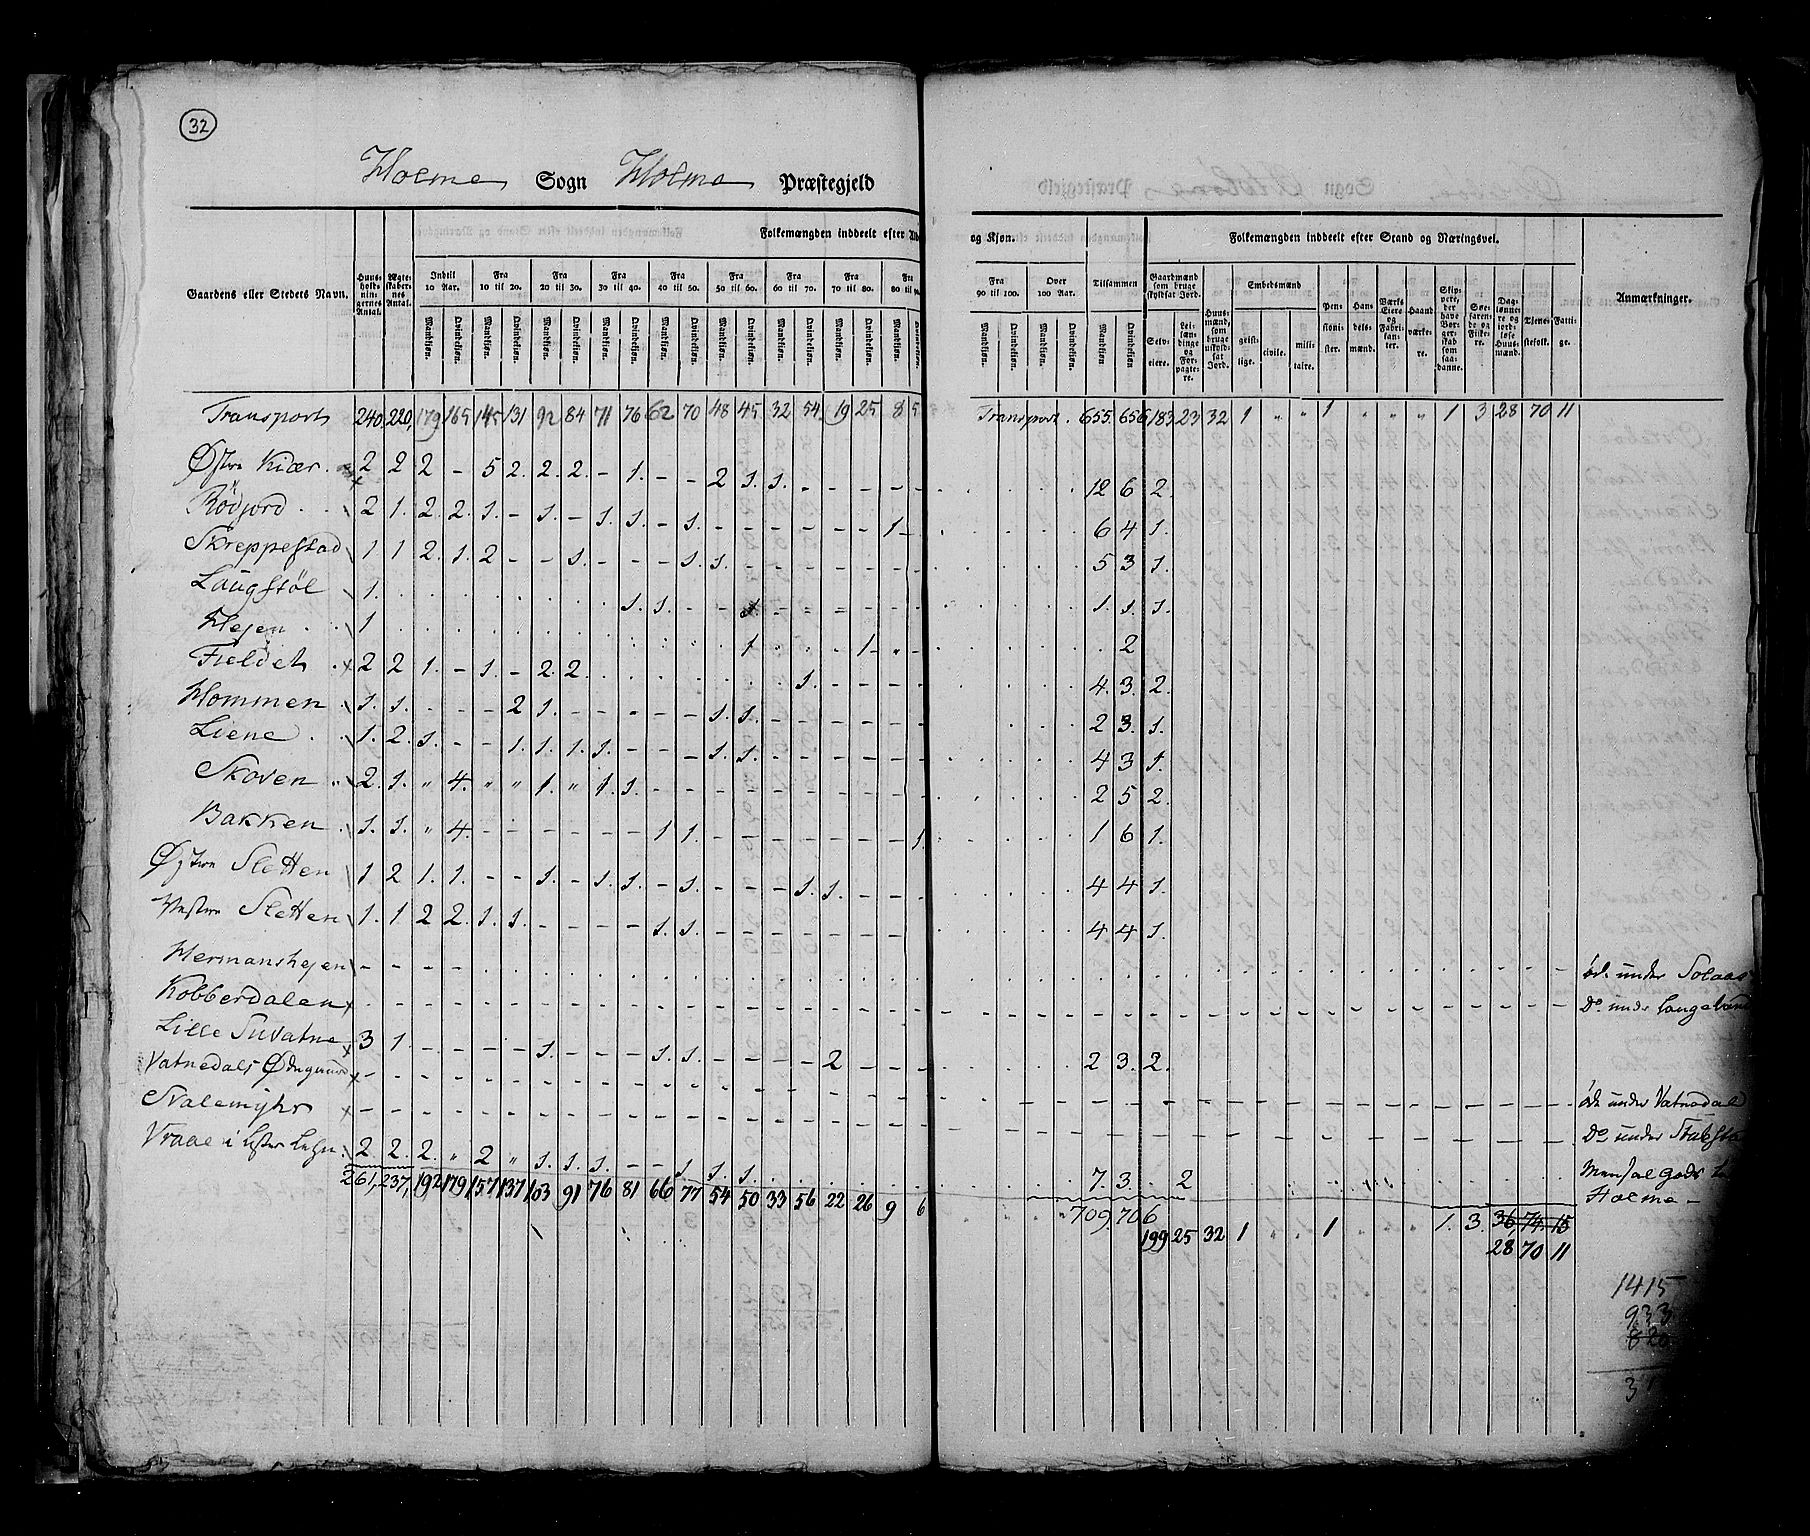 32
Holme Sogn Holme Præstegjeld
Gaardens eller Stedets Navn. Huusholdningernes Antal. Ægteskabernes Antal. Folkemængden inddeelt efter
Indtil 10 Aar. Fra 10 til 20. Fra 20 til 30. Fra 30 til 40. Fra 40 til 50. Fra 50 til 60. Fra 60 til 70. Fra 70 til 80. Fra 80 til
Mandkjøn. Qvindekjøn. Mandkjøn. Qvindekjøn. Mandkjøn. Qvindekjøn. Mandkjøn. Qvindekjøn. Mandkjøn. Qvindekjøn. Mandkjøn. Qvindekjøn. Mandkjøn. Qvindekjøn. Mandkjøn. Qvindekjøn. Mandkjøn. Qvindekjøn.
og Kjøn. Folkemængden inddeelt efter Stand og Næringsvei. Anmærkninger.
Fra 90 til 100. Over 100 Aar. Tilsammen Gaardmænd som bruge skyldsat Jord. Huusmænd, som bruge uskyldsat Jord. Embedsmænd Pensionister. Handelsmænd. Værks Eiere og Fabrikanter. Haandværkere. Skippere, der have Borgerskab som saadanne. Søefarende og Fiskere. Daglønnere og jordløse Huusmænd. Tjenestefolk. Fattige.
Mandkjøn. Qvindekjøn. Mandkjøn. Qvindekjøn. Mandkjøn. Qvindekjøn. Selveiere. Leilændinge og Forpagtere. geistlige. civile. militaire.
Transport 240. 220. 179 165 145 131 92 84 71 76 62 70 48 45. 32 54. 19 25 8 5 Transport. 655. 656 183 23 32 1 " " 1 " " " 1 3 28 70 11
Østre Kiær. 2 2 2 - 5 2. 2. 2. - 1. - - 2 1. 1. - - - - - 12 6 2.
Rödjord 2 1. 2. 2. 1. - 1. - 1. 1. - 1. - - - - - - 1 - 6 4 1.
Skreppestad 1 1 2. 1. 2 - - 1. - - - 1. 1. - - - - - - - 5 3 1.
Laugstøl 1. 1. 1. - - 1. - - - - - - 1. 1. 1.
Hejen 1 1 1 2
Fieldet 2 2 1. - 1. - 2. 2. 1. 4. 3. 2.
Hommen 1. 1. - - - 2 1. - - - - - 1. 1. - - - - - - 2 3. 1.
Liene 1. 2. 1. - - 1. 1. 1. 1. - - - 1. 1. - - - - - - 4 3 1.
Skoven 2. 1. " 4. " " 1. " 1. 1. - - - - - - - - - - 2 5 2.
Bakken 1. 1. " 4. - - - - - - 1 1. - - - - - - - 1. 1 6 1.
Østre Sletten 1 2 1. 1. - - 1. - 1. 1. - 1. - - - 1. 1. - - - 4 4 1.
Vestre Sletten 1. 1 2 2. 1. 1. - - - - 1. 1. - - - - - - - - 4 4 1.
Hermanshejen - - - - øde under Solaas
Kobberdalen D.o under
Lille Suvatne 3 1. - - - - 1. - - - 1. 1. - - - - 2 - - - 2 3. 2.
Vatnedals - - - - øde under Vatnedal
Svalemyhr - - - - D.o under
Vraae i 2 2. 2. " 2 " 1. 1. 1. - - 1 1 1. 7. 3. 2 Mensal Gods
Holme -
261, 237, 192 179 157 137 103 91 76 81 66 77 54 50 33 56 22 26 9 6 709. 706 199 25 32 1 " " 1 " " " 1. 3. 36, 74. 15
28 70 11
1415
933